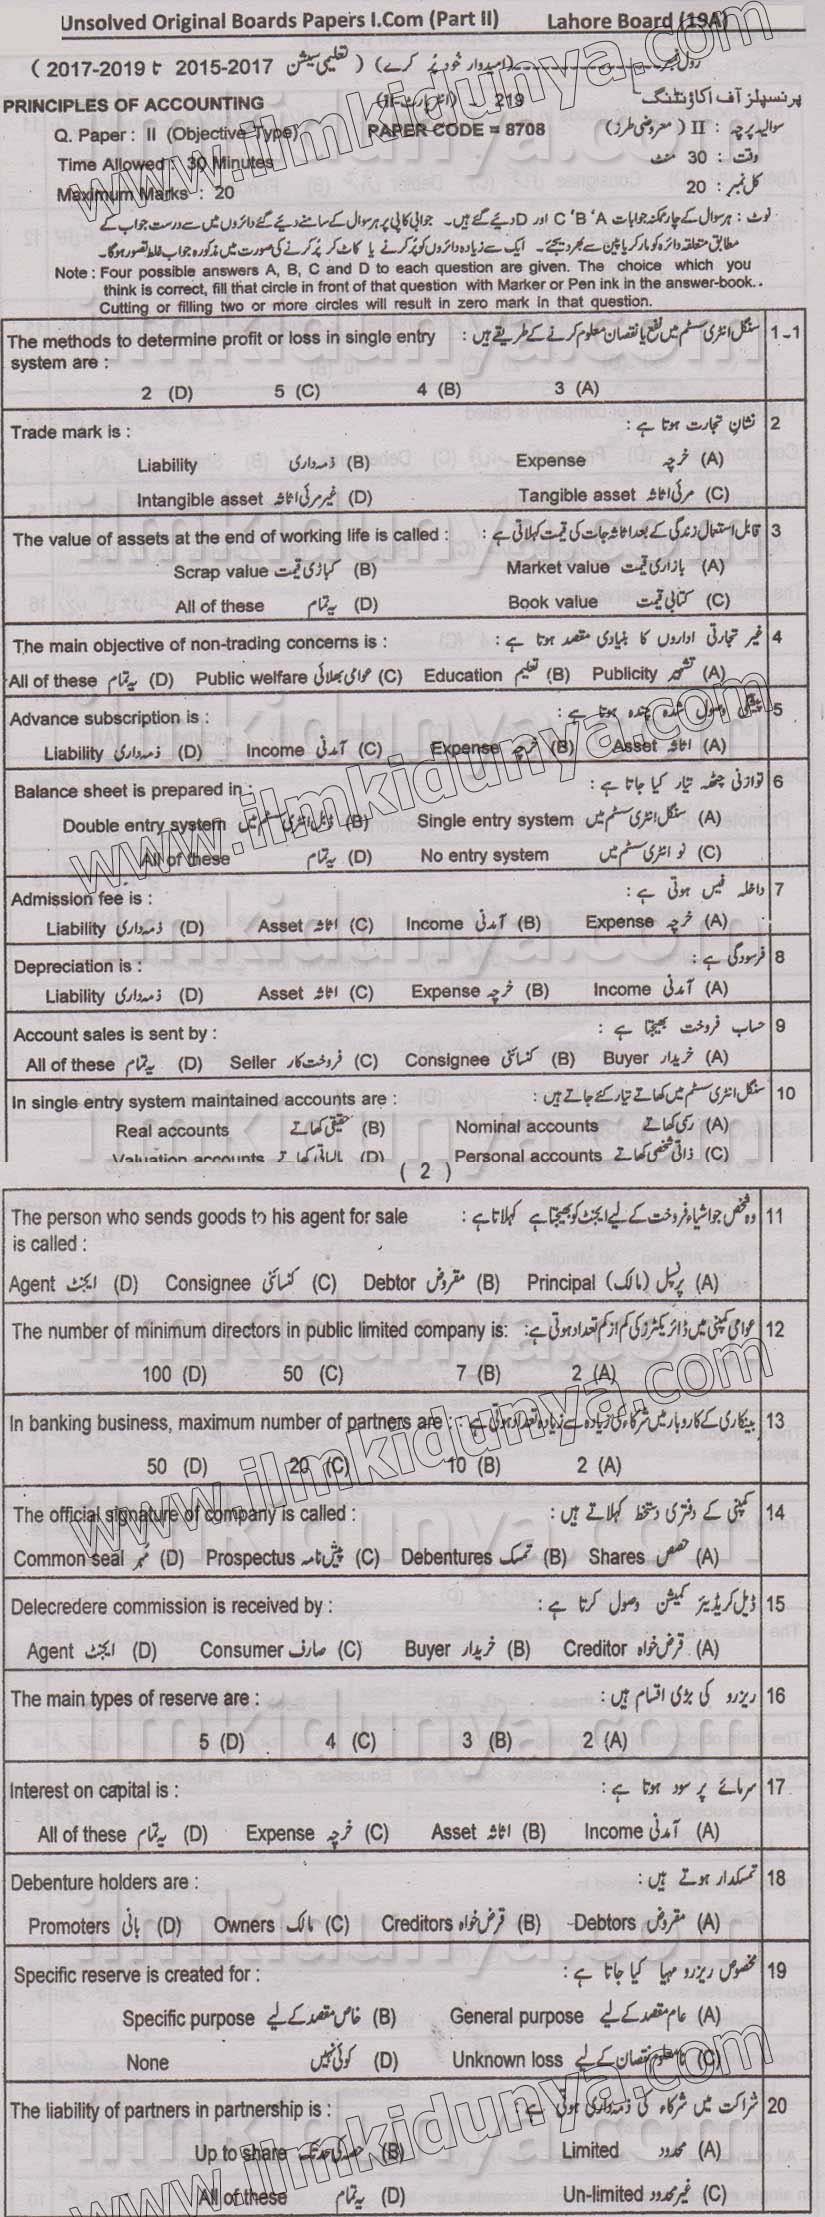 Unsolved Original Boards Papers I.Com (Part II) Lahore Board (19A)
رول نمبر (امیدوار خود پُر کرے) ( تعلیمی سیشن 2015-2017 تا 2017-2019 )
PRINCIPLES OF ACCOUNTING 219 - (انٹر پارٹ-II) پرنسپلز آف اکاؤنٹنگ
Q. Paper : II (Objective Type) PAPER CODE = 8708 سوالیہ پرچہ : II ( معروضی طرز )
Time Allowed : 30 Minutes وقت : 30 منٹ
Maximum Marks : 20 کل نمبر : 20
نوٹ : ہر سوال کے چار ممکنہ جوابات A ' B ' C اور D دیئے گئے ہیں۔ جوابی کاپی پر ہر سوال کے سامنے دیئے گئے دائروں میں سے درست جواب کے
مطابق متعلقہ دائرہ کو مارکر یا پین سے بھر دیجئے۔ ایک سے زیادہ دائروں کو پُر کرنے یا کاٹ کر پُر کرنے کی صورت میں مذکورہ جواب غلط تصور ہو گا۔
Note : Four possible answers A, B, C and D to each question are given. The choice which you
think is correct, fill that circle in front of that question with Marker or Pen ink in the answer-book.
Cutting or filling two or more circles will result in zero mark in that question.
The methods to determine profit or loss in single entry سنگل انٹری سسٹم میں نفع یا نقصان معلوم کرنے کے طریقے ہیں : 1-1
system are :
2 (D) 5 (C) 4 (B) 3 (A)
Trade mark is : نشانِ تجارت ہوتا ہے : 2
Liability ذمہ داری (B) Expense خرچہ (A)
Intangible asset غیر مرئی اثاثہ (D) Tangible asset مرئی اثاثہ (C)
The value of assets at the end of working life is called : قابل استعمال زندگی کے بعد اثاثہ جات کی قیمت کہلاتی ہے : 3
Scrap value کباڑی قیمت (B) Market value بازاری قیمت (A)
All of these یہ تمام (D) Book value کتابی قیمت (C)
The main objective of non-trading concerns is : غیر تجارتی اداروں کا بنیادی مقصد ہوتا ہے : 4
All of these یہ تمام (D) Public welfare عوامی بھلائی (C) Education تعلیم (B) Publicity تشہیر (A)
Advance subscription is : پیشگی وصول شدہ چندہ ہوتا ہے : 5
Liability ذمہ داری (D) Income آمدنی (C) Expense خرچہ (B) Asset اثاثہ (A)
Balance sheet is prepared in : توازنی چٹھہ تیار کیا جاتا ہے : 6
Double entry system ڈبل انٹری سسٹم میں (B) Single entry system سنگل انٹری سسٹم میں (A)
All of these یہ تمام (D) No entry system نو انٹری سسٹم میں (C)
Admission fee is : داخلہ فیس ہوتی ہے : 7
Liability ذمہ داری (D) Asset اثاثہ (C) Income آمدنی (B) Expense خرچہ (A)
Depreciation is : فرسودگی ہے : 8
Liability ذمہ داری (D) Asset اثاثہ (C) Expense خرچہ (B) Income آمدنی (A)
Account sales is sent by : حساب فروخت بھیجتا ہے : 9
All of these یہ تمام (D) Seller فروخت کار (C) Consignee کنسائنی (B) Buyer خریدار (A)
In single entry system maintained accounts are : سنگل انٹری سسٹم میں کھاتے تیار کئے جاتے ہیں : 10
Real accounts حقیقی کھاتے (B) Nominal accounts رسمی کھاتے (A)
Valuation accounts مالیاتی کھاتے (D) Personal accounts ذاتی شخصی کھاتے (C)
( 2 )
The person who sends goods to his agent for sale وہ شخص جو اشیاء فروخت کے لیے ایجنٹ کو بھیجتا ہے کہلاتا ہے : 11
is called :
Agent ایجنٹ (D) Consignee کنسائنی (C) Debtor مقروض (B) Principal پرنسپل (مالک) (A)
The number of minimum directors in public limited company is: عوامی کمپنی میں ڈائریکٹرز کی کم از کم تعداد ہوتی ہے : 12
100 (D) 50 (C) 7 (B) 2 (A)
In banking business, maximum number of partners are : بینکاری کے کاروبار میں شرکاء کی زیادہ سے زیادہ تعداد ہوتی ہے : 13
50 (D) 20 (C) 10 (B) 2 (A)
The official signature of company is called : کمپنی کے دفتری دستخط کہلاتے ہیں : 14
Common seal مہر (D) Prospectus پیش نامہ (C) Debentures تمسک (B) Shares حصص (A)
Delecredere commission is received by : ڈیل کریڈیئر کمیشن وصول کرتا ہے : 15
Agent ایجنٹ (D) Consumer صارف (C) Buyer خریدار (B) Creditor قرض خواہ (A)
The main types of reserve are : ریزرو کی بڑی اقسام ہیں : 16
5 (D) 4 (C) 3 (B) 2 (A)
Interest on capital is : سرمائے پر سود ہوتا ہے : 17
All of these یہ تمام (D) Expense خرچہ (C) Asset اثاثہ (B) Income آمدنی (A)
Debenture holders are : تمسکدار ہوتے ہیں : 18
Promoters بانی (D) Owners مالک (C) Creditors قرض خواہ (B) Debtors مقروض (A)
Specific reserve is created for : مخصوص ریزرو مہیا کیا جاتا ہے : 19
Specific purpose خاص مقصد کے لیے (B) General purpose عام مقصد کے لیے (A)
None کوئی نہیں (D) Unknown loss نامعلوم نقصان کے لیے (C)
The liability of partners in partnership is : شراکت میں شرکاء کی ذمہ داری ہوتی ہے : 20
Up to share حصہ کی حد تک (B) Limited محدود (A)
All of these یہ تمام (D) Un-limited غیر محدود (C)
www.ilmkidunya.com